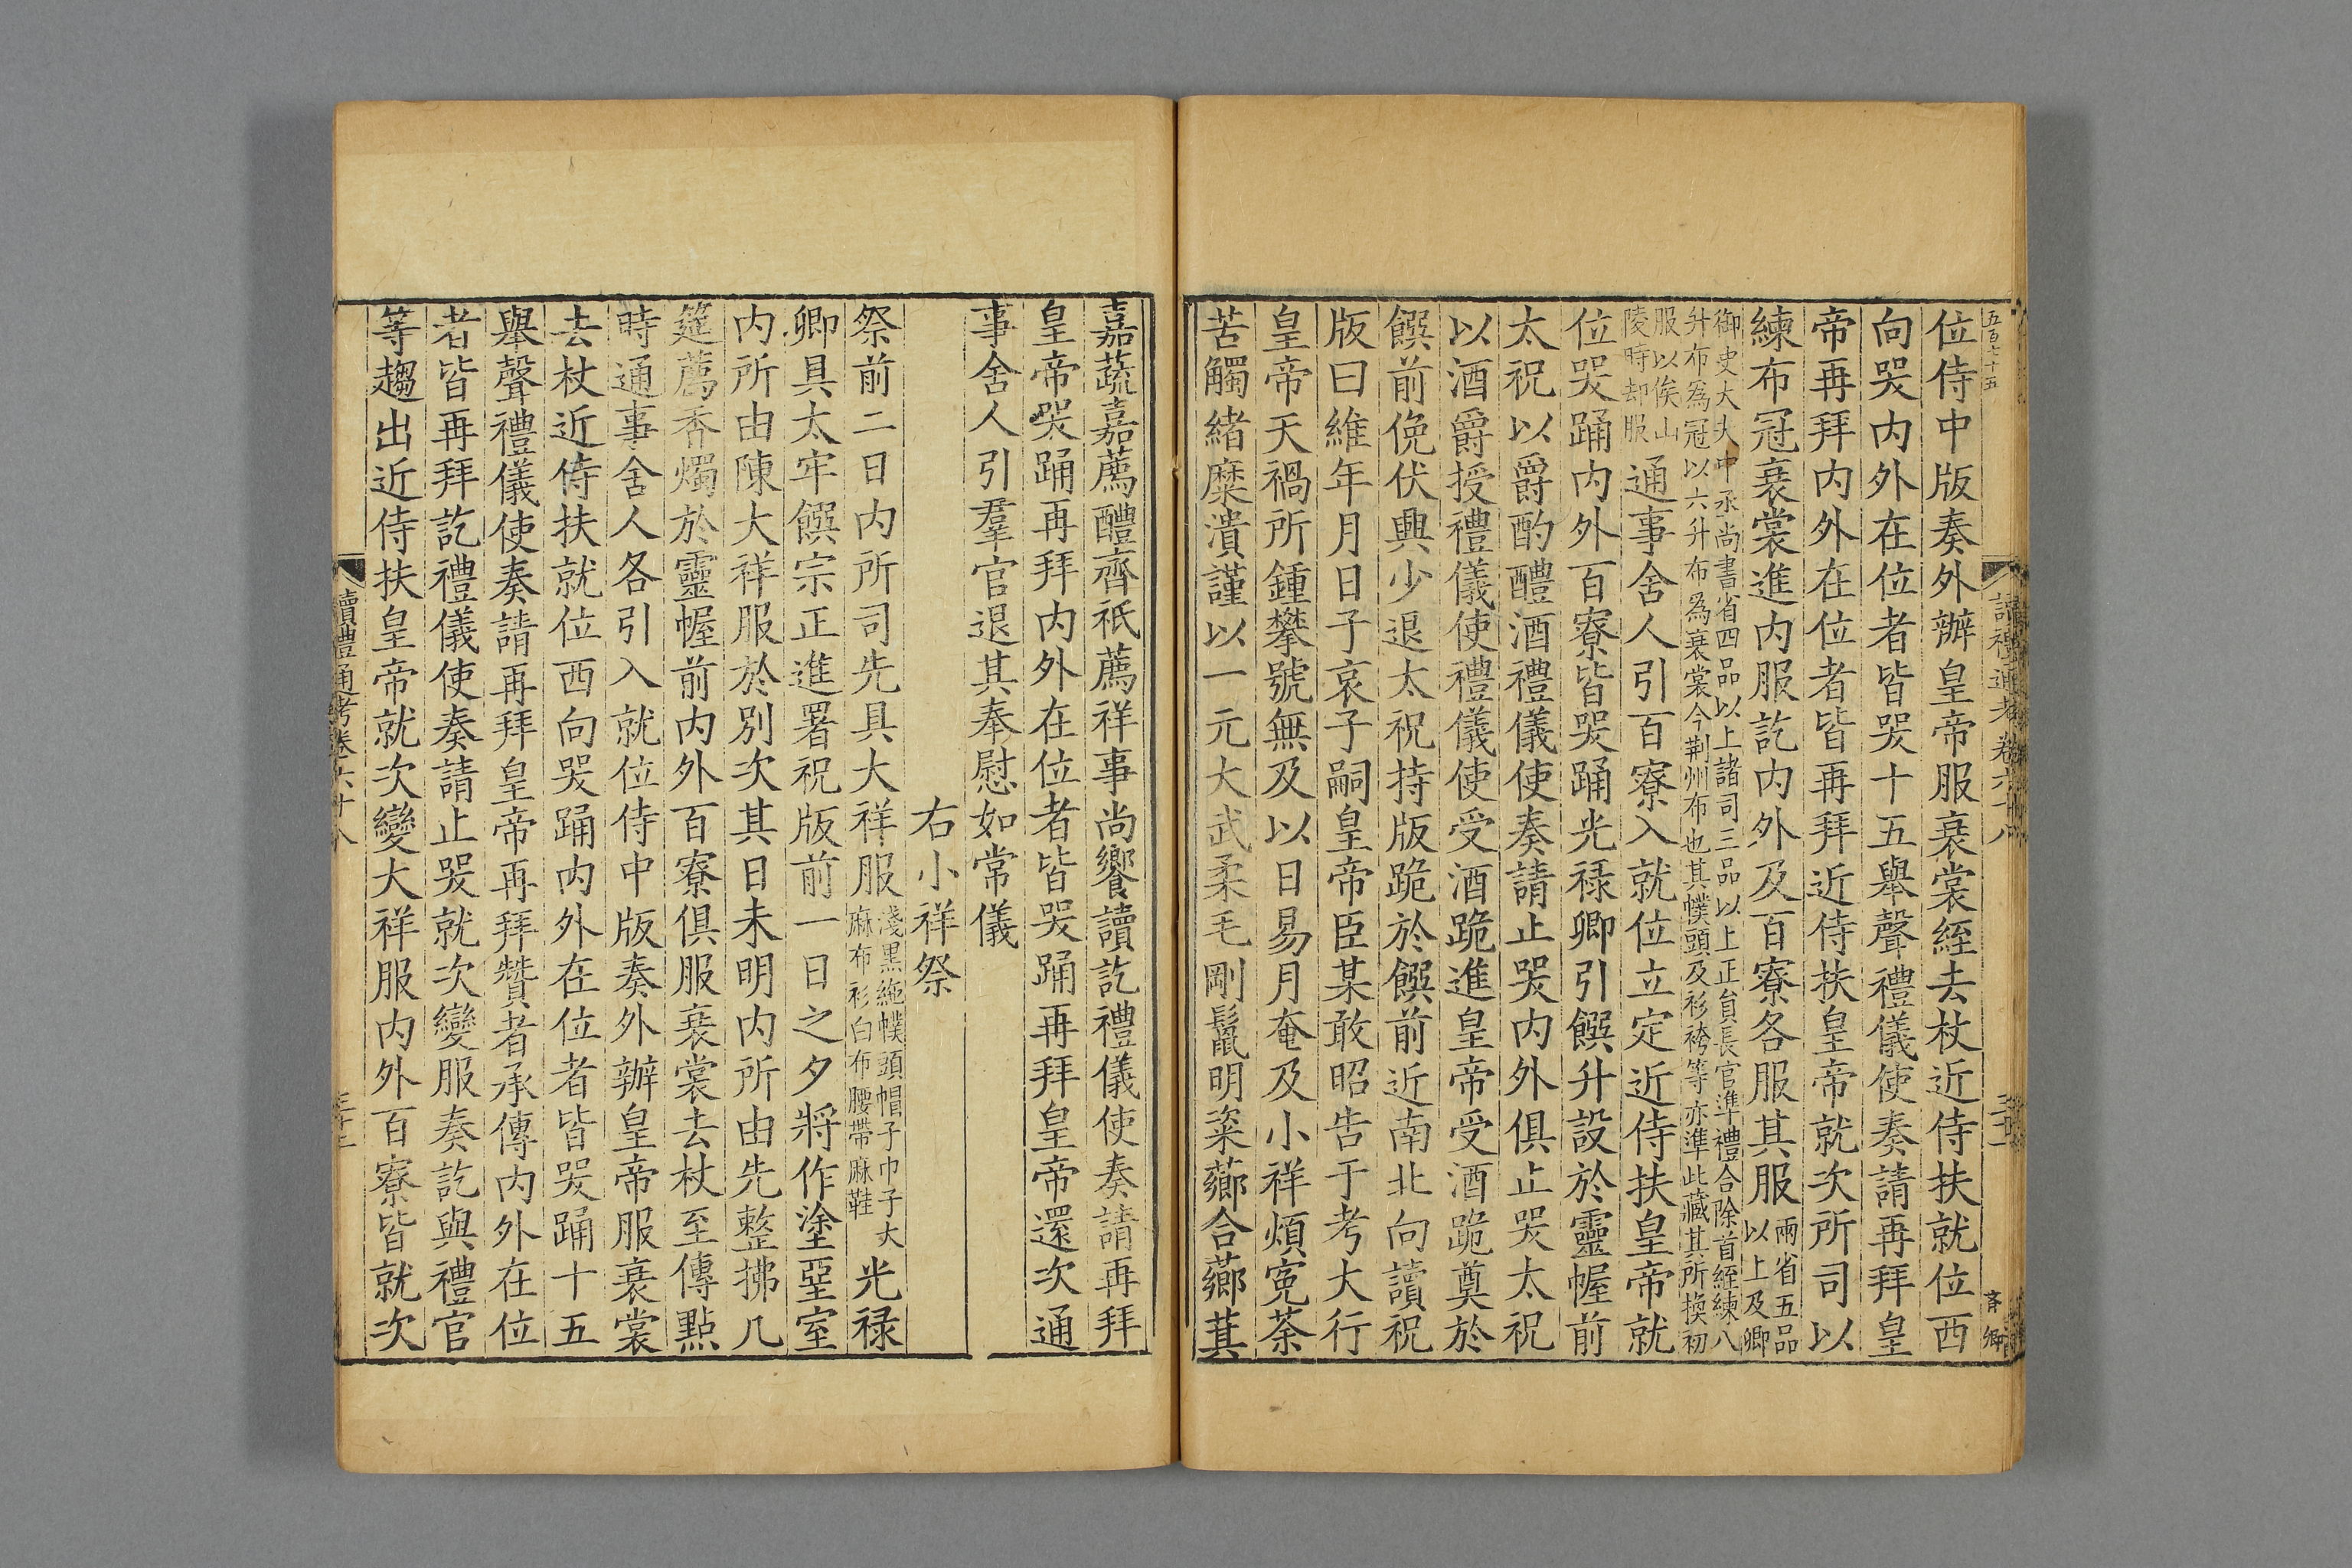 五百七十五
讀禮通考卷六十八
位侍中版奏外辦皇帝服衰裳絰去杖近侍扶就位西
向哭内外在位者皆哭十五舉聲禮儀使奏請再拜皇
帝再拜内外在位者皆再拜近侍扶皇帝就次所司以
練布冠衰裳進内服訖内外及百寮各服其服兩省五品
以上及卿
御史大夫中丞尚書省四品以上諸司三品以上正員長官準禮合除首絰練八
升布為冠以六升布為衰裳今荆州布也其幞頭及衫袴等亦準此藏其所換初
服以俟山
陵時却服
通事舍人引百寮入就位立定近侍扶皇帝就
位哭踊内外百寮皆哭踊光禄卿引饌升設於靈幄前
太祝以爵酌醴酒禮儀使奏請止哭内外俱止哭太祝
以酒爵授禮儀使禮儀使受酒跪進皇帝受酒跪奠於
饌前俛伏興少退太祝持版跪於饌前近南北向讀祝
版曰維年月日子哀子嗣皇帝臣某敢昭告于考大行
皇帝天禍所鍾攀號無及以日易月奄及小祥煩寃荼
苦觸緒糜潰謹以一元大武柔毛剛鬛明粢薌合薌萁
嘉蔬嘉薦醴齊祇薦祥事尚饗讀訖禮儀使奏請再拜
皇帝哭踊再拜内外在位者皆哭踊再拜皇帝還次通
事舍人引羣官退其奉慰如常儀
右小祥祭
祭前二日内所司先具大祥服淺黑絁幞頭帽子巾子大
麻布衫白布腰帶麻鞋
光禄
卿具太牢饌宗正進署祝版前一日之夕將作塗堊室
内所由陳大祥服於別次其日未明内所由先整拂几
筵薦香燭於靈幄前内外百寮俱服衰裳去杖至傳點
時通事舍人各引入就位侍中版奏外辦皇帝服衰裳
去杖近侍扶就位西向哭踊内外在位者皆哭踊十五
舉聲禮儀使奏請再拜皇帝再拜贊者承傳内外在位
者皆再拜訖禮儀使奏請止哭就次變服奏訖與禮官
等趨出近侍扶皇帝就次變大祥服内外百寮皆就次
讀禮通考卷六十八